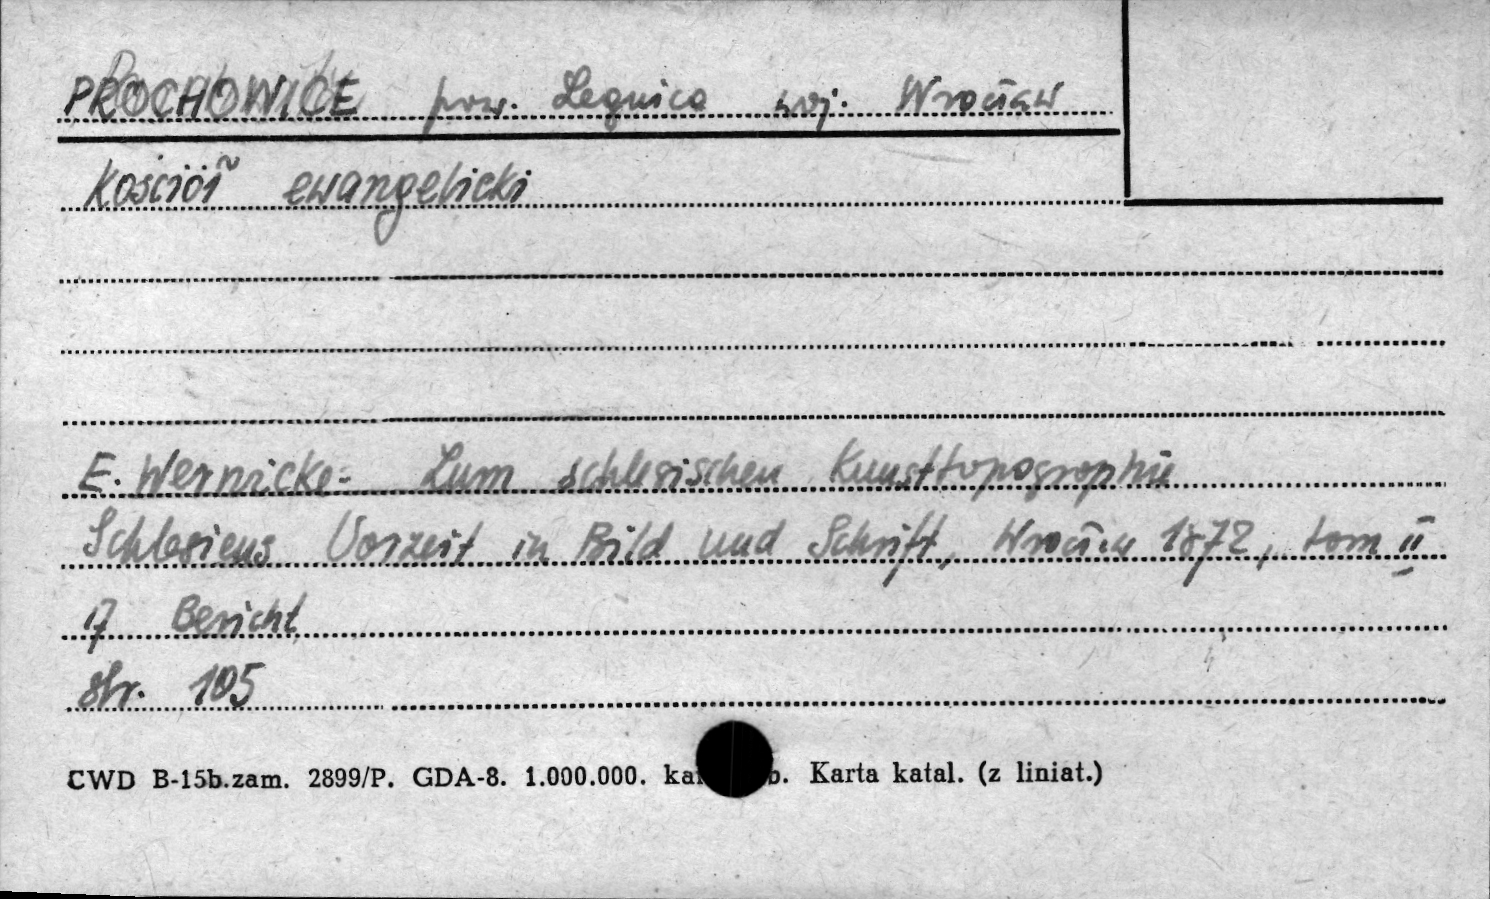 PROCHOWICE pow. Legnica woj. Wrocław
Kościół ewangelicki
E. Wernicke: Zum schlesischen Kunsttopographie
Schlesiens Vorzeit in Bild und Schrift, Wrocław 1872, tom II
17 Bericht
str. 105
CWD B-15b.zam. 2899/P. GDA-8. 1.000.000. Karta katal. (z liniat.)